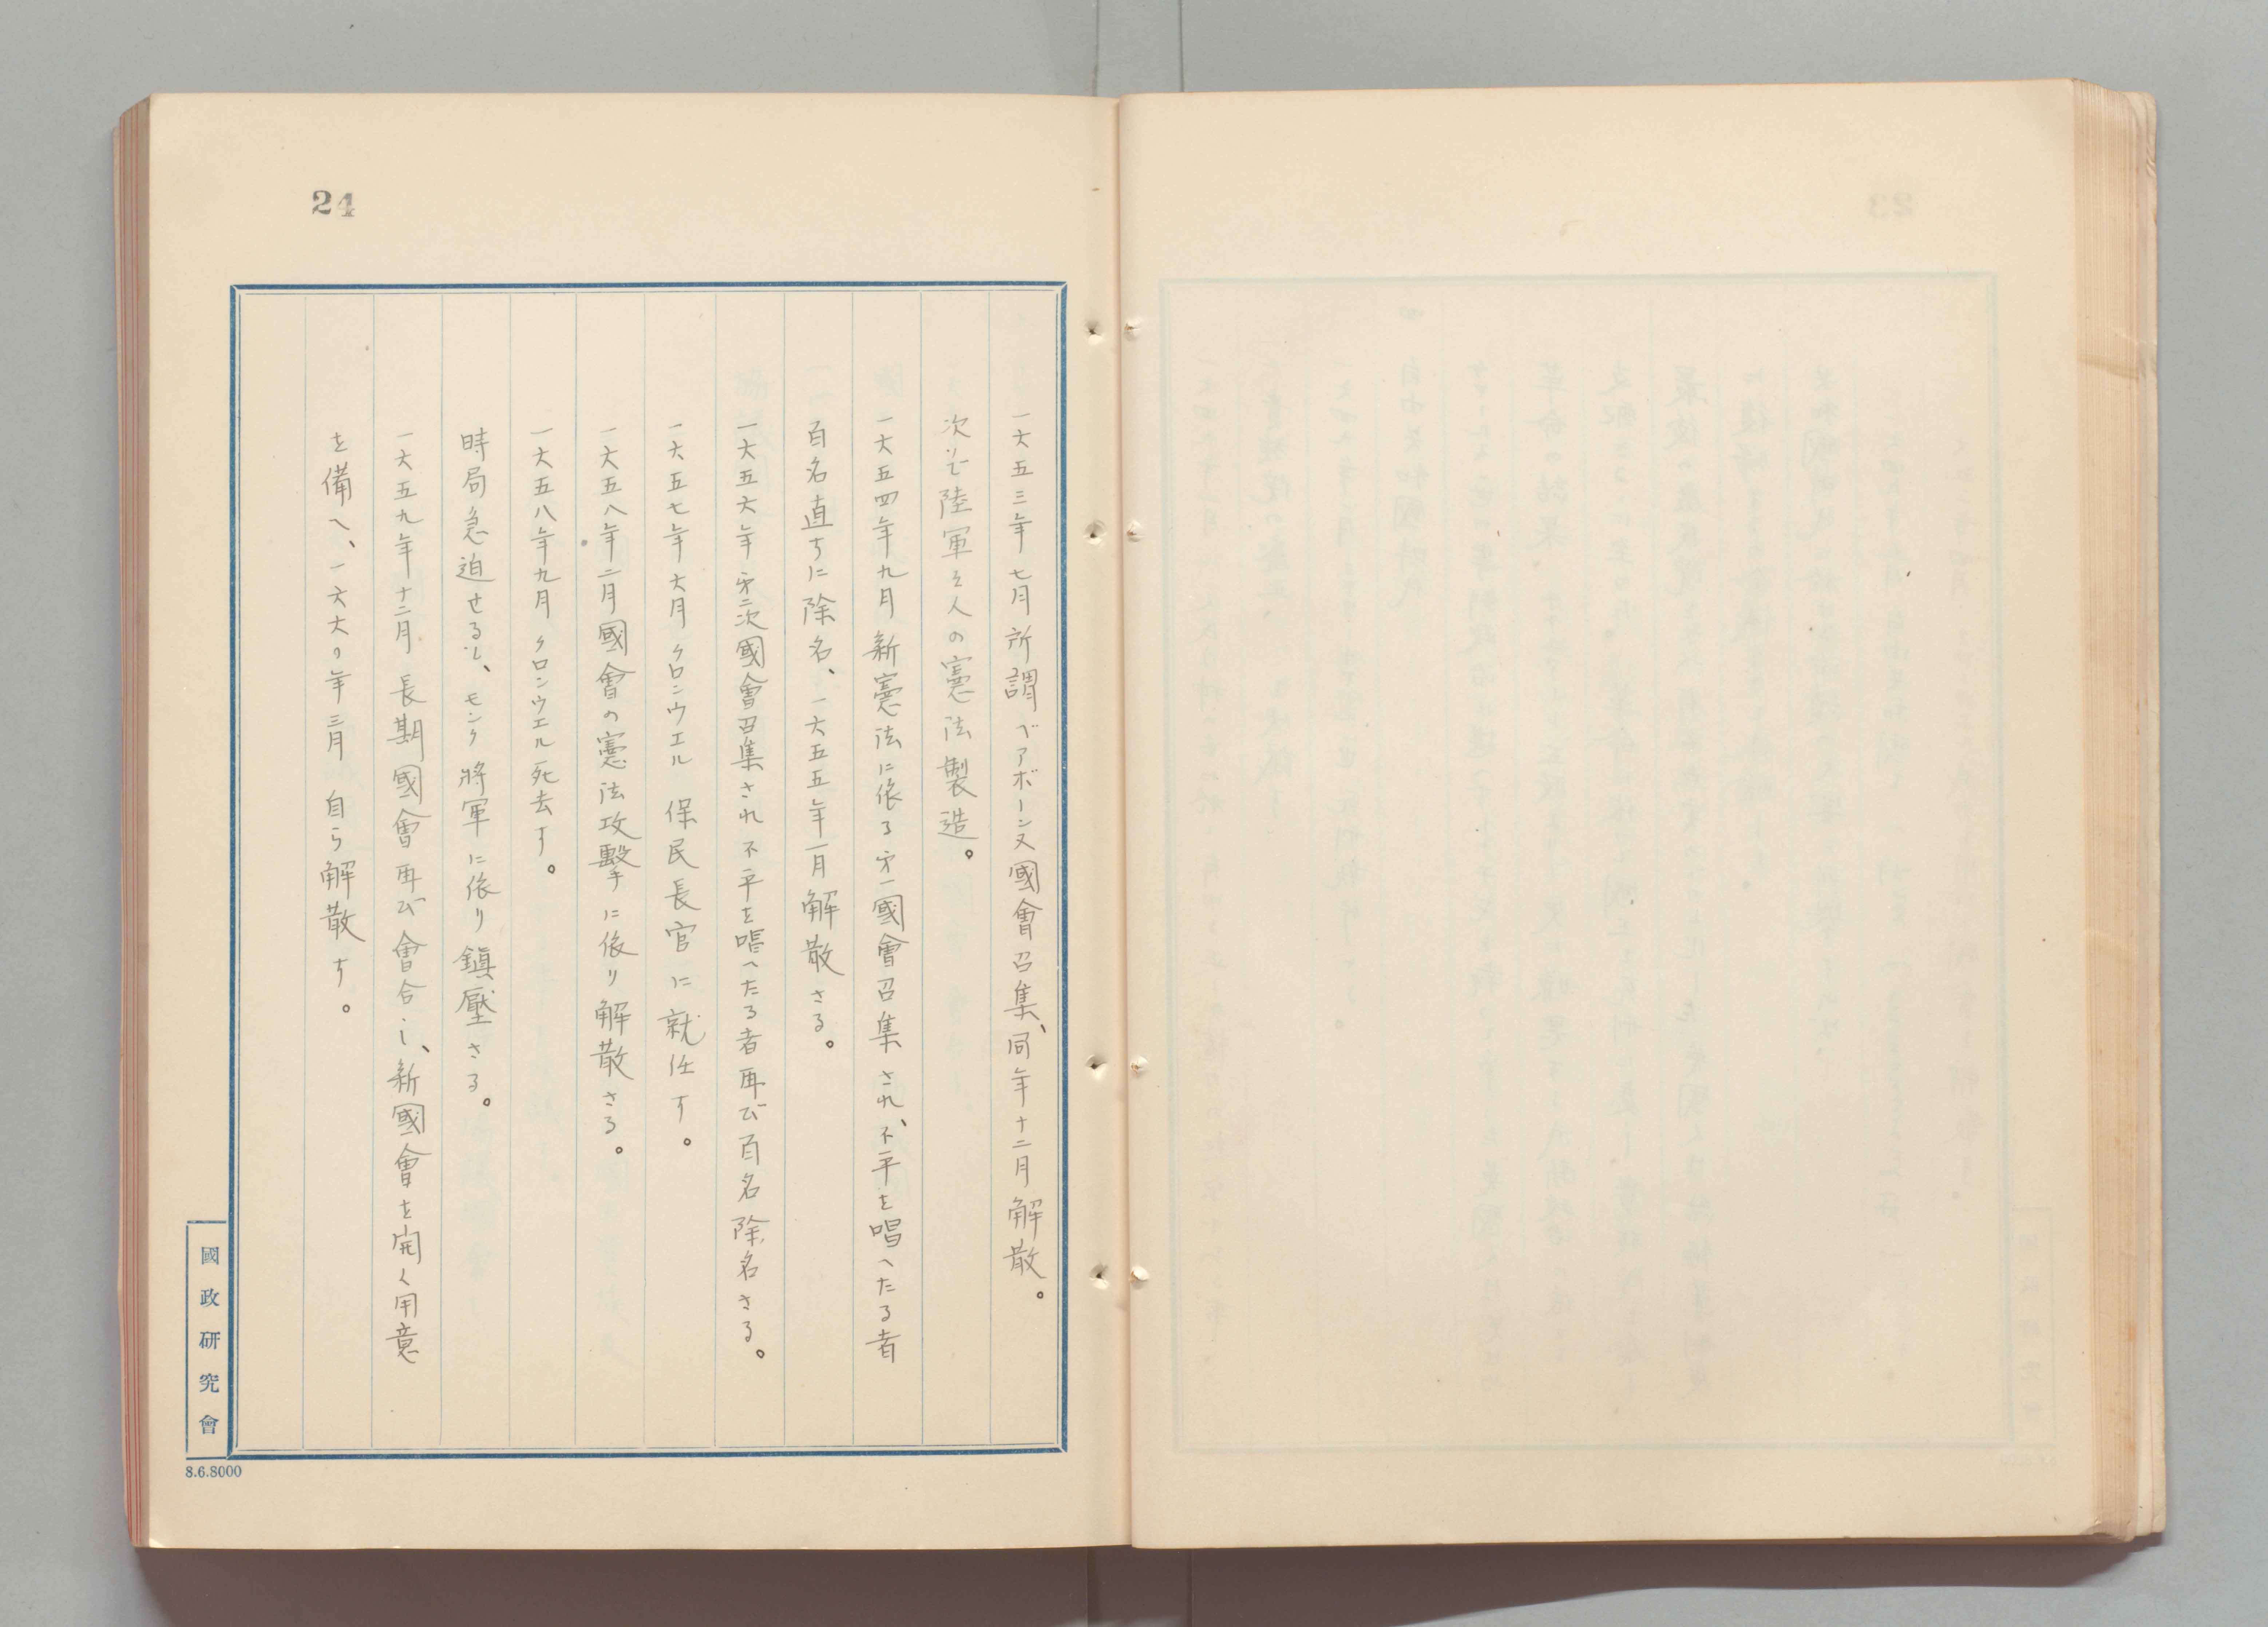 24
一六五三年七月所謂ベアボーン又國會召集、同年十二月解散。
次で陸軍々人の憲法製造。
一六五四年九月新憲法に依る第一國會召集され、不平を唱へたる者
百名直ちに除名、一六五五年一月解散さる。
一六五六年第二次國會召集され不平を唱へたる者再び百名除名さる。
一六五七年六月クロンウエル保民長官に就任す。
一六五八年二月國會の憲法攻擊に依り解散さる。
一六五八年九月クロンウエル死去す。
時局急迫せるも、モンク將軍に依り鎭壓さる。
一六五九年十二月長期國會再び會合し、新國會を開く用意
を備へ、一六六〇年三月自ら解散す。
國政研究會
8.6.8000